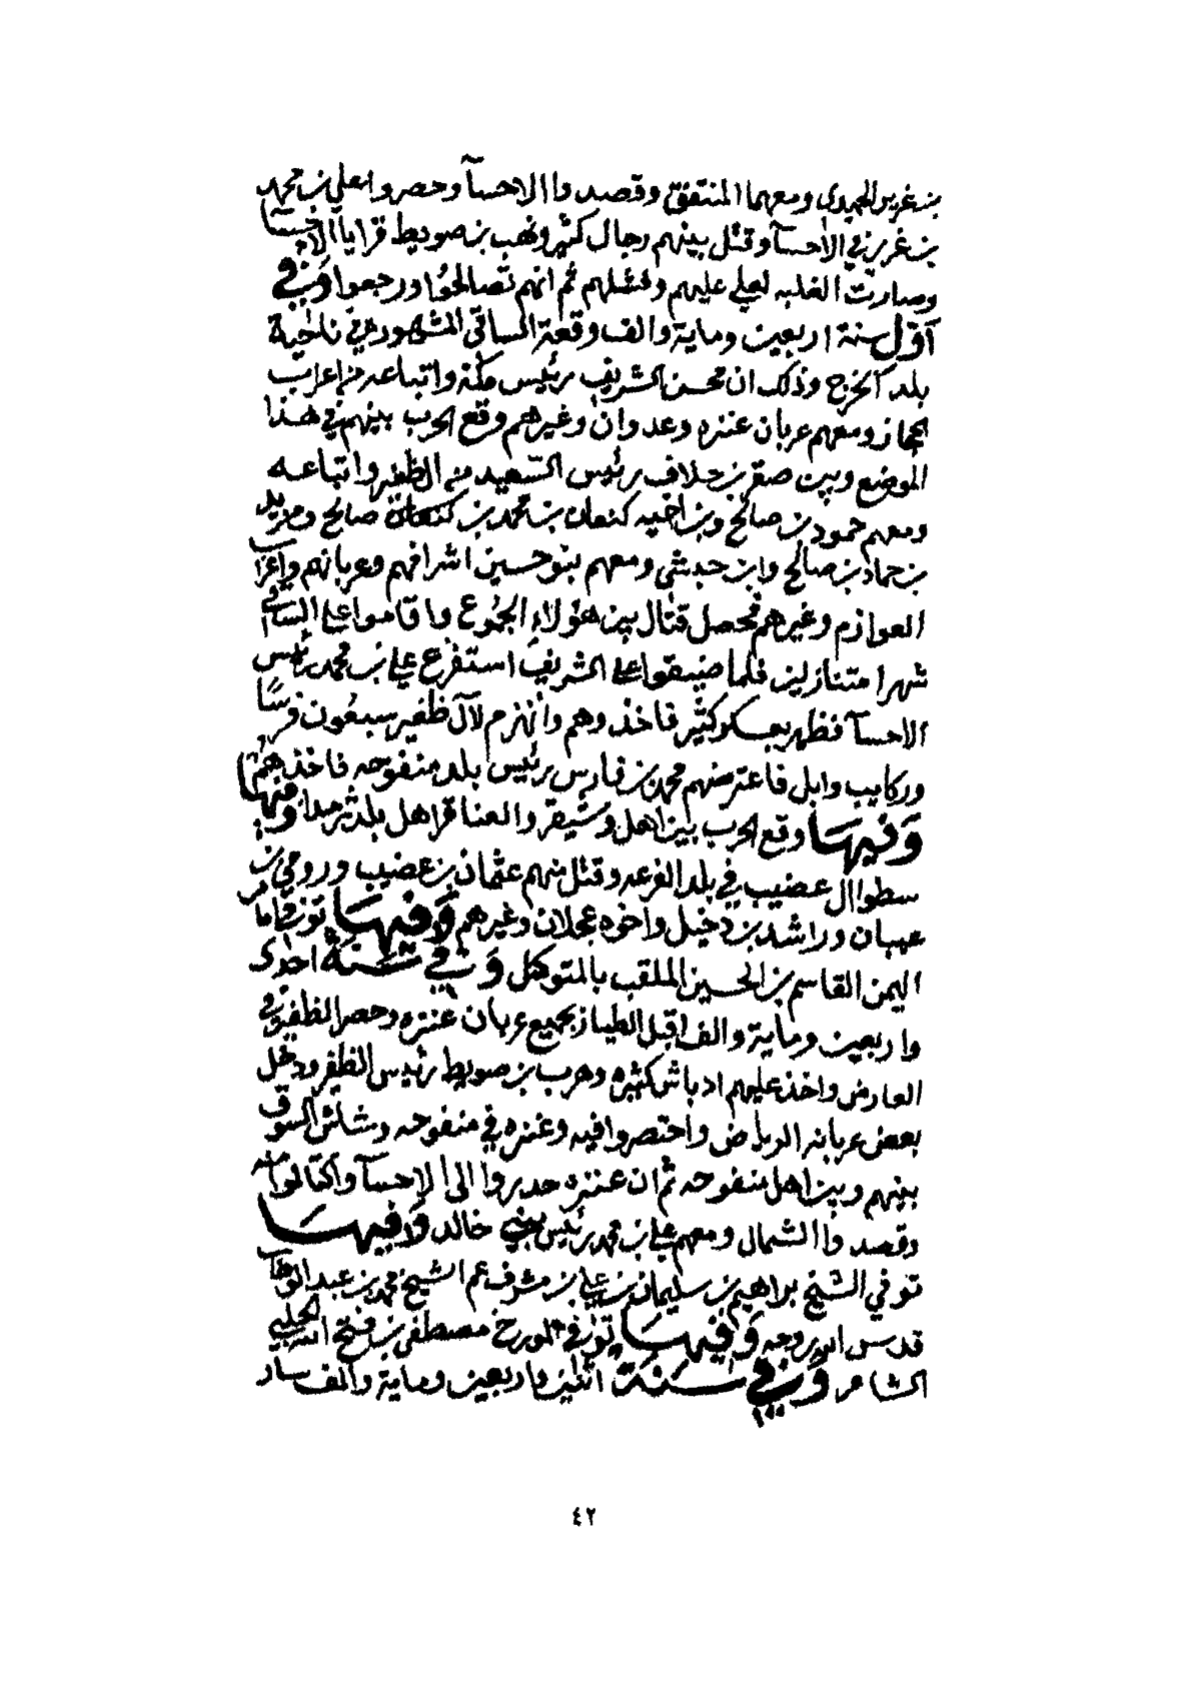 بن غرير الحميدي ومعهما المنتفق وقصدوا الاحسآ وحصروا علي بن محمد
بن غرير في الاحسآ وقتل بينهم رجال كثير ونهب بن صويط قرايا الاحسآ
وصارت الغلبه لعلي عليهم وفشلهم ثم انهم تصالحوا ورجعوا وفي
آول سنة اربعين وماية والف وقعة الساقي المشهوره في ناحية
بلد الخرج وذلك ان محسن الشريف رئيس مكة واتباعه من اعراب
الحجاز ومعهم عربان عنزه وعدوان وغيرهم وقع الحرب بينهم في هذا
الموضع وبين صقر بن حلاف رئيس السعيد من الظفير واتباعه
ومعهم حمود بن صالح وبن اخيه كنعان بن محمد بن كنعان صالح ومزيد
بن حماد بن صالح وابن حبشي ومعهم بنو حسين اشرافهم وعربانهم واعراب
العوازم وغيرهم فحصل قتال بين هؤلاء الجموع واقاموا على الساقي
شهرا متنازلين فلما ضيقوا على الشريف استفزع علي بن محمد رئيس
الاحسآ فظهر بعسكر كثير فاخذوهم وانهزم لآل ظفير سبعون فرسًا
وركايب وابل فاعترضهم محمد بن فارس رئيس بلد منفوحه فاخذهم
وَفيهَا وقع الحرب بين اهل وشيقر والعناقر اهل بلد ثرمدا وفيها
سطوا ال عضيب في بلد الفرعه وقتل منهم عثمان بن عضيب ورومي بن
عهبان وراشد بن دخيل واخوه عجلان وغيرهم وَفيهَا توفي امام
اليمن القاسم بن الحسين الملقب بالمتوكل وَفي سَنَة احدى
واربعين وماية والف اقبل الطيار بجميع عربان عنزه وحصر الظفير في
العارض واخذ عليهم ادباش كثيره وهرب بن صويط رئيس الظفير ودخل
بعض عربانه الرياض واحتصروا فيه وعنزه في منفوحه وشاش السوق
بينهم وبين اهل منفوحه ثم ان عنزه حدروا الى الاحسآ واكتالوا منه
وقصدوا الشمال ومعهم علي بن محمد رئيس بني خالد وَفيهَا
توفي الشيخ براهيم بن سليمان بن علي بن مشرف عم الشيخ محمد بن عبد الوهاب
قدس الله روحه وَفيهَا توفي المورخ مصطفى بن فتح الله الحلبي
الشاعر وَفي سَنَة اثنين واربعين وماية والف سار
٤٢